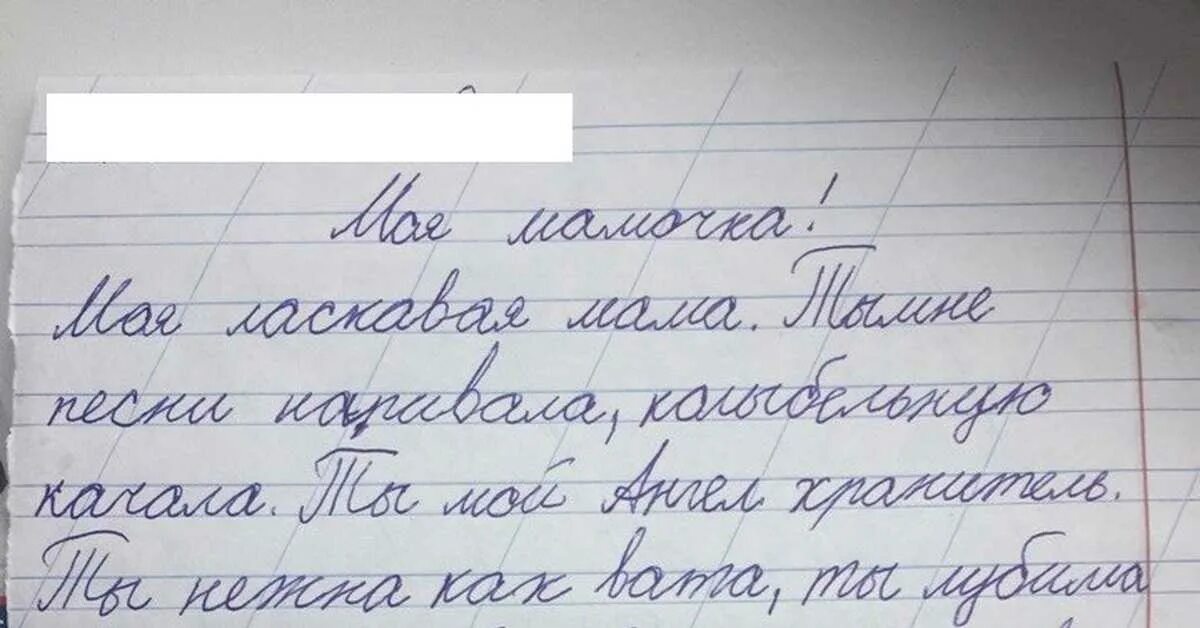 Моя мамочка!
Моя ласкавая мама. Ты мне
песни напивала, колыбельную
качала. Ты мой Ангел хранитель.
Ты нежна как вата, ты лубима